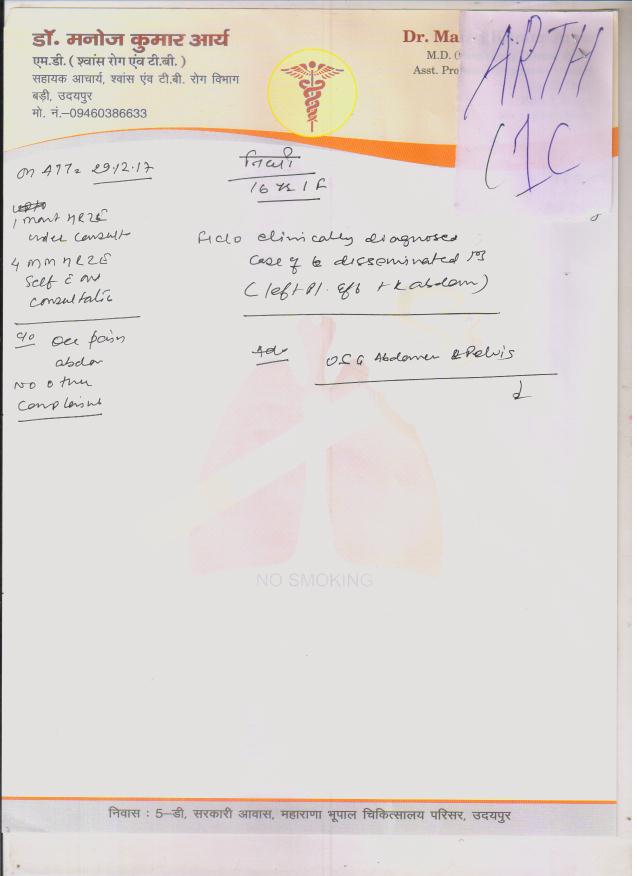 डॉ. मनोज कुमार आर्य
एम.डी. ( श्वांस रोग एंव टी.बी. )
सहायक आचार्य, श्वांस एंव टी.बी. रोग विभाग
बड़ी, उदयपुर
मो. नं.–09460386633
Dr. Ma
M.D. (
Asst. Pro
ARTH
C1C
on ATT 29.12.17
16 F
1 mont HRZE
under consult
4 HRZE
Self
consultatio
c/o occ pain
abdo
NO other
Complaint
clinically diagnosed
case of disseminated
(left Pl. eff + K abdom)
Adv
USG Abdomen & Pelvis
NO SMOKING
निवास : 5–डी, सरकारी आवास, महाराणा भूपाल चिकित्सालय परिसर, उदयपुर